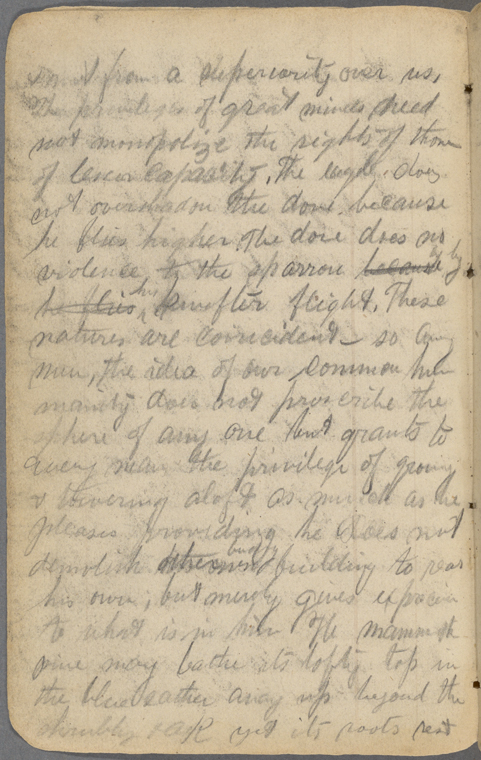 from a superiority over us,
The privileges of great minds need
not monopolize the rights of those
of lesser capacity, The eagle does
not overshadow the dove because
he flies higher, The dove does no
violence to the sparrow because by
he flies his swifter flight, These
natures are coincident – so
men, the idea of our common hu
manity does not proscribe the
sphere of any one but grants to
every man the privilege of growing
& towering aloft as much as he
pleases providing he does not
demolish building to rear
his own; but merely gives
to what is in him The mammoth
pine may bathe its lofty top in
the blue eather away up beyond the
shrubby oak yet its roots rest